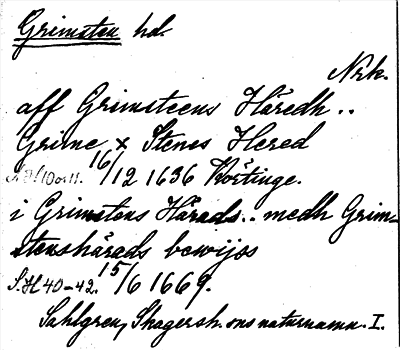 Grimsten hd.
Nrk.
aff Grimsteens Häredh ..
Grime x Stenes Hered
10 o. 11. 16/12 1636 Körtinge.
i Grimstens Härads .. medh Grim-
stenshärads bewijs
S. H 40-42. 15/6 1669.
Sahlgren, Skagersh. ons naturnamn. I.